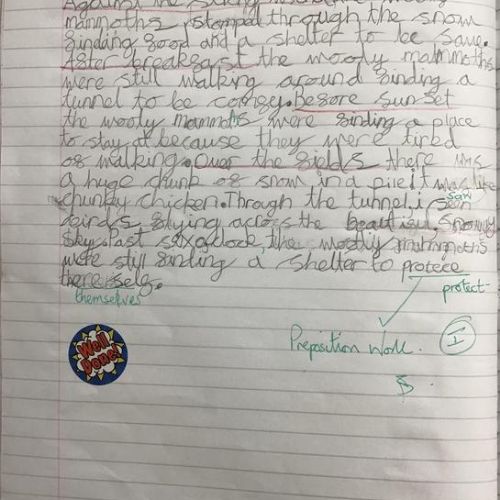 Against the
mammoths stomped through the snow
finding food and a shelter to be save.
After breakfast the wooly mammoths
were still walking around finding a
tunnel to be comfey. Before sun set
the wooly mammoths were finding a place
to stay at because they were tired
of walking. Over the fields there was
a huge chunk of snow in a pile it was like
chunky chicken. Through the tunnel, i seen
saw
birds flying across the beautiful snowy
sky. Past six o'clock, the woolly mammoths
were still finding a shelter to protece
there self.
themselves
protect
Preposition Work. I
Well Done!